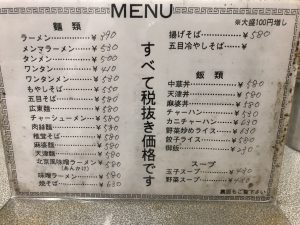 MENU
※大盛100円増し
麺類
ラーメン ¥390
メンマラーメン ¥530
タンメン ¥500
ワンタン ¥430
ワンタンメン ¥530
もやしそば ¥550
五目そば ¥580
広東麺 ¥580
チャーシューメン ¥580
肉絲麺 ¥580
雅堂そば ¥580
麻婆麺 ¥580
天津麺 ¥580
北京風味噌ラーメン ¥580
(あんかけ)
味噌ラーメン ¥580
焼そば ¥630
すべて税抜き価格です
揚げそば ¥580
五目冷やしそば ¥
飯類
中華丼 ¥580
天津丼 ¥580
麻婆丼 ¥580
チャーハン ¥530
カニチャーハン ¥630
野菜炒めライス ¥630
餃子ライス ¥580
御飯 ¥290
スープ
玉子スープ
野菜スープ
裏面もご覧下さい